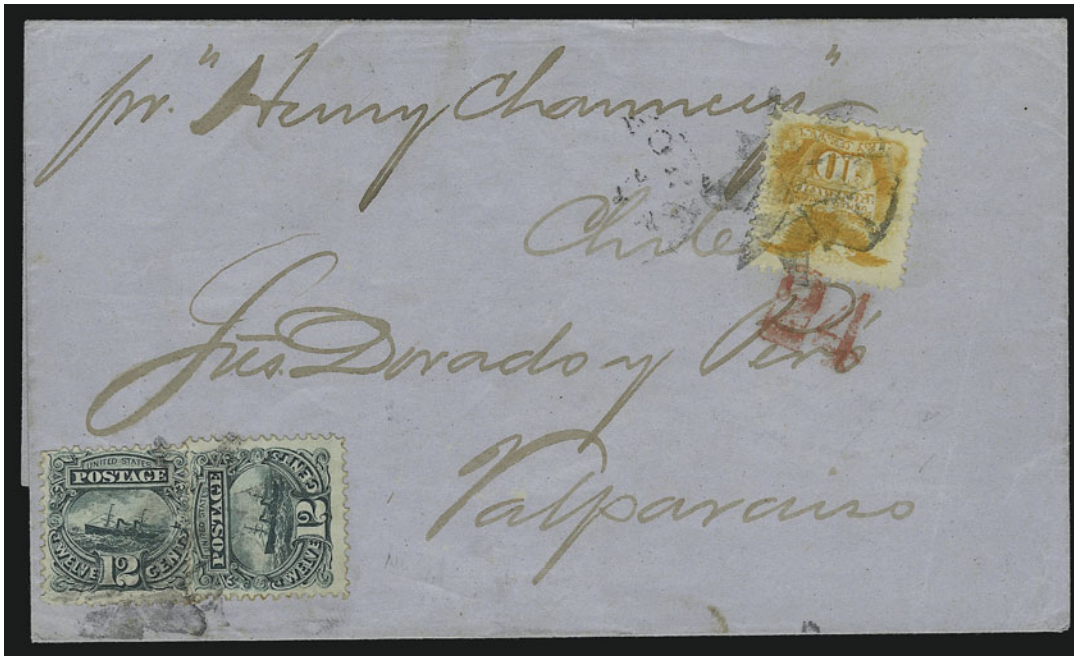 pr. "Henry Chauncey"
Chile
24
Dorado y
Valparaiso
TEN CENTS
10
UNITED STATES
POSTAGE
TWELVE 12 CENTS
UNITED STATES
POSTAGE
TWELVE 12 CENTS